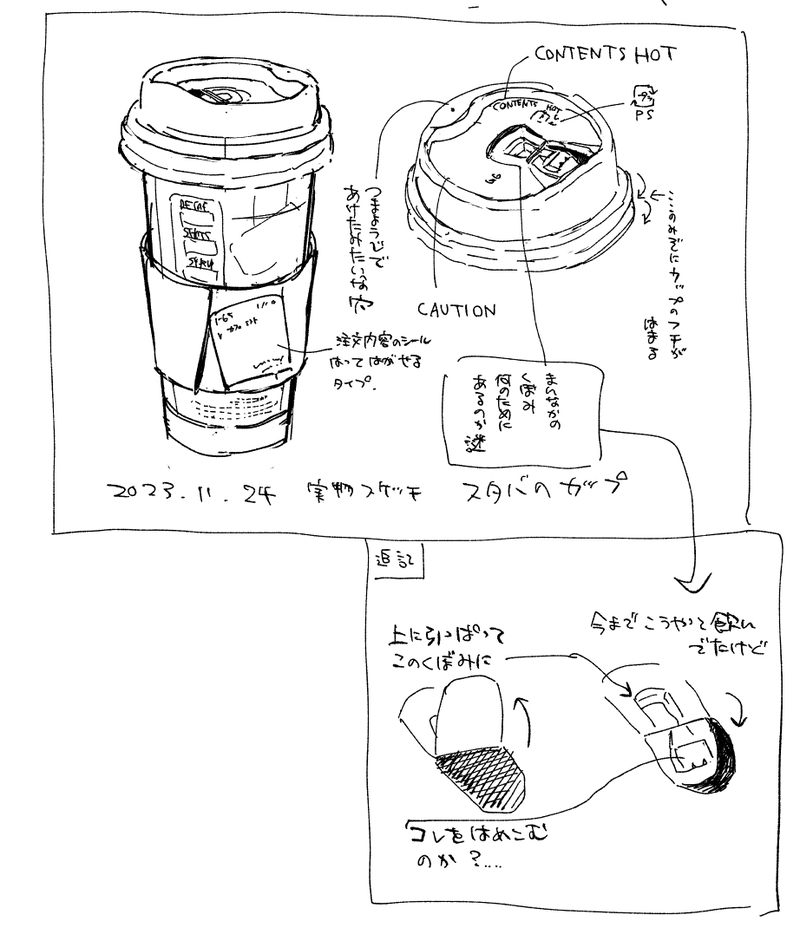 CONTENTS HOT
CONTENTS HOT
PS
DECAF
SHOTS
SYRUP
つまようじで
あけたみたいな
穴
CAUTION
ここのみぞにカップのフチが
はまる
注文内容のシール
はって はがせる
タイプ.
まんなかの
くぼみ
何のために
あるのか謎
2023.11.24 実物スケッチ スタバのカップ
追記
上に引っぱって
このくぼみに
今までこうやって飲ん
でたけど
コレをはめこむ
のか?....